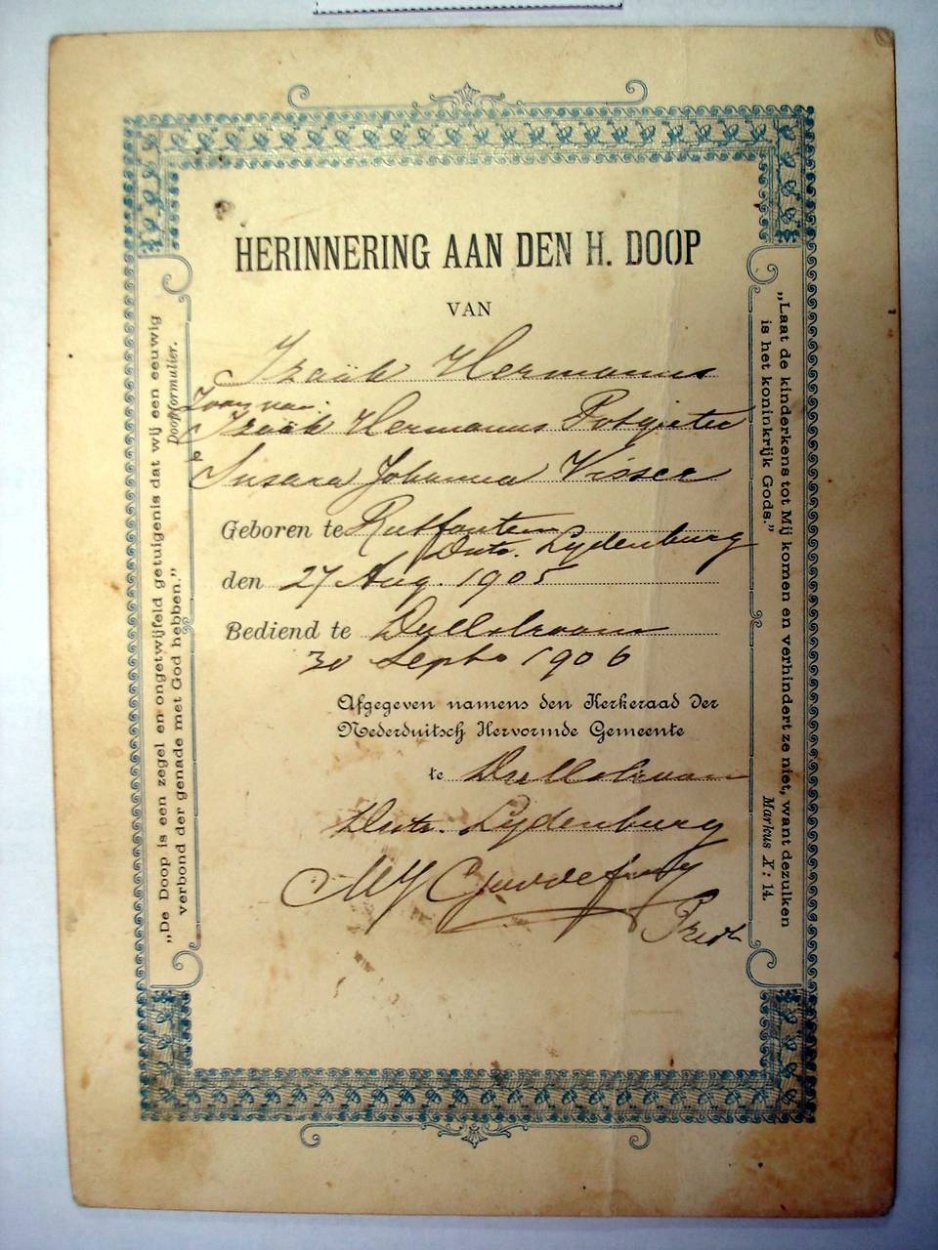 HERINNERING AAN DEN H. DOOP
VAN
Izaäk Hermanus
Zoon van
Izaäk Hermanus Potgieter
& Susara Johanna Visser
Geboren te Rietfontein
Distr. Lydenburg
den 27 Aug. 1905
Bediend te Dullstroom
30 Septb 1906
Afgegeven namens den Kerkeraad der
Nederduitsch Hervormde Gemeente
te Dullstroom
Distr. Lydenburg
Pred.
„De Doop is een zegel en ongetwijfeld getuigenis dat wij een eeuwig
verbond der genade met God hebben.” Doopformulier.
„Laat de kinderkens tot Mij komen en verhindert ze niet, want dezulken
is het koninkrijk Gods.” Markus X: 14.